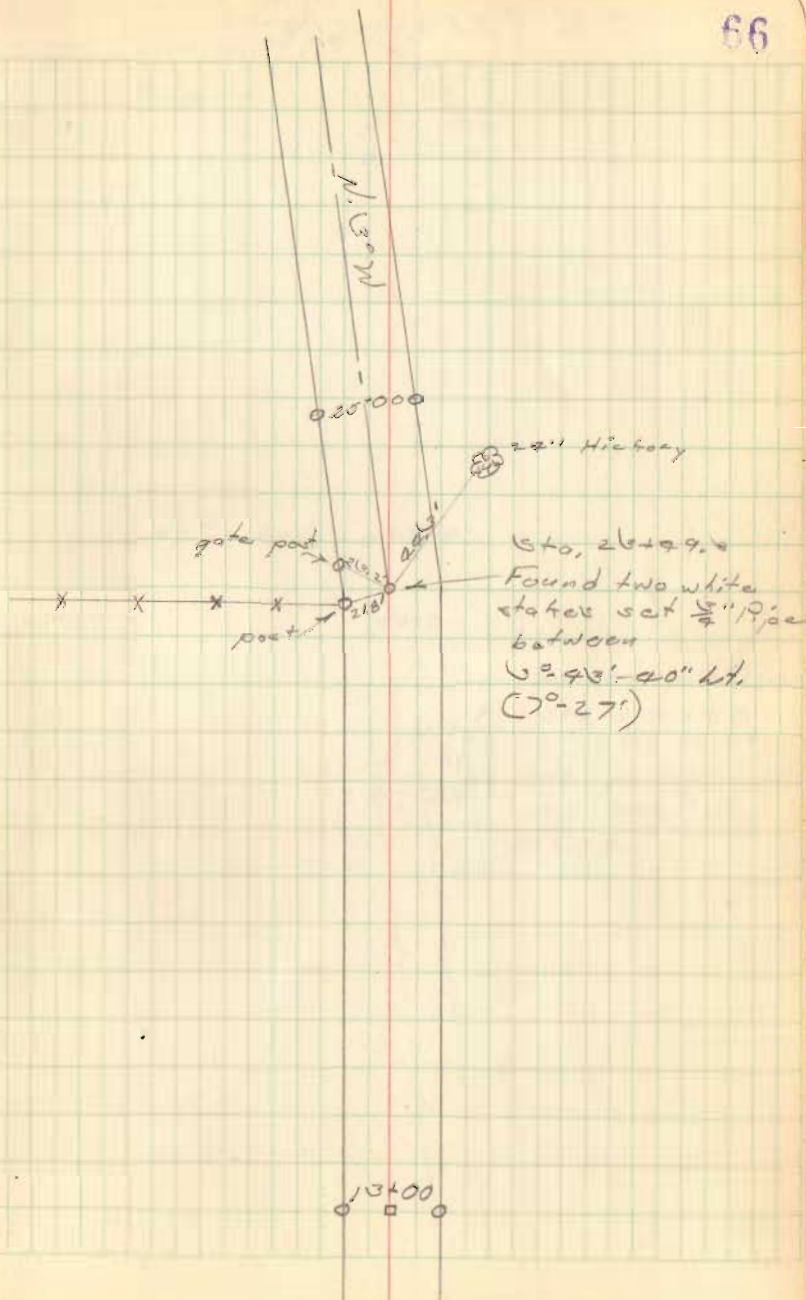 66
N. 3° W
25+00
22" Hickory
gate post
21.8'
post
Sta. 23+49.
Found two white
stakes set 3/4" Pipe
between
3°-43'-40" Lt.
(7°-27')
13+00